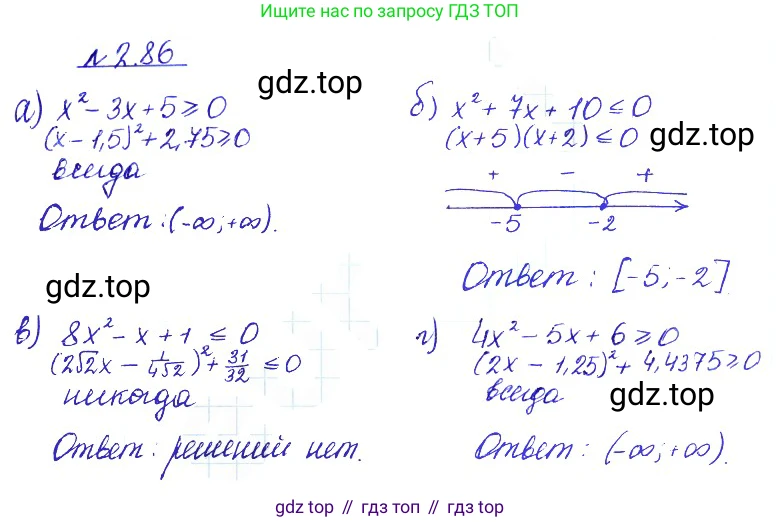 Ищите нас по запросу ГДЗ ТОП
№ 2.86
gdz.top
а) x² - 3x + 5 ≥ 0
(x - 1,5)² + 2,75 ≥ 0
всегда
Ответ: (-∞; +∞).
б) x² + 7x + 10 ≤ 0
(x+5)(x+2) ≤ 0
gdz.top
+ - +
-5 -2
Ответ: [-5; -2]
gdz.top
в) 8x² - x + 1 ≤ 0
(2√2x - 1/4√2)² + 31/32 ≤ 0
никогда
Ответ: решений нет.
г) 4x² - 5x + 6 ≥ 0
(2x - 1,25)² + 4,4375 ≥ 0
всегда
gdz.top
Ответ: (-∞; +∞).
gdz.top // гдз топ // gdz.top